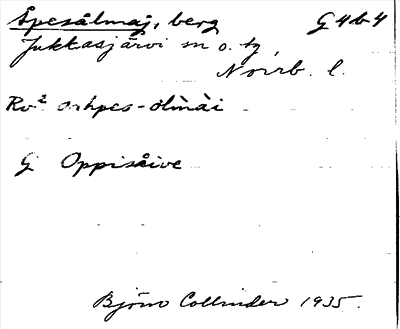 Åpesålmaj, berg G4b4
Jukkasjärvi sn o. tg,
Norrb. l.
Rv² orhpes-ölmài
G Oppisåive
Björn Collinder 1935.